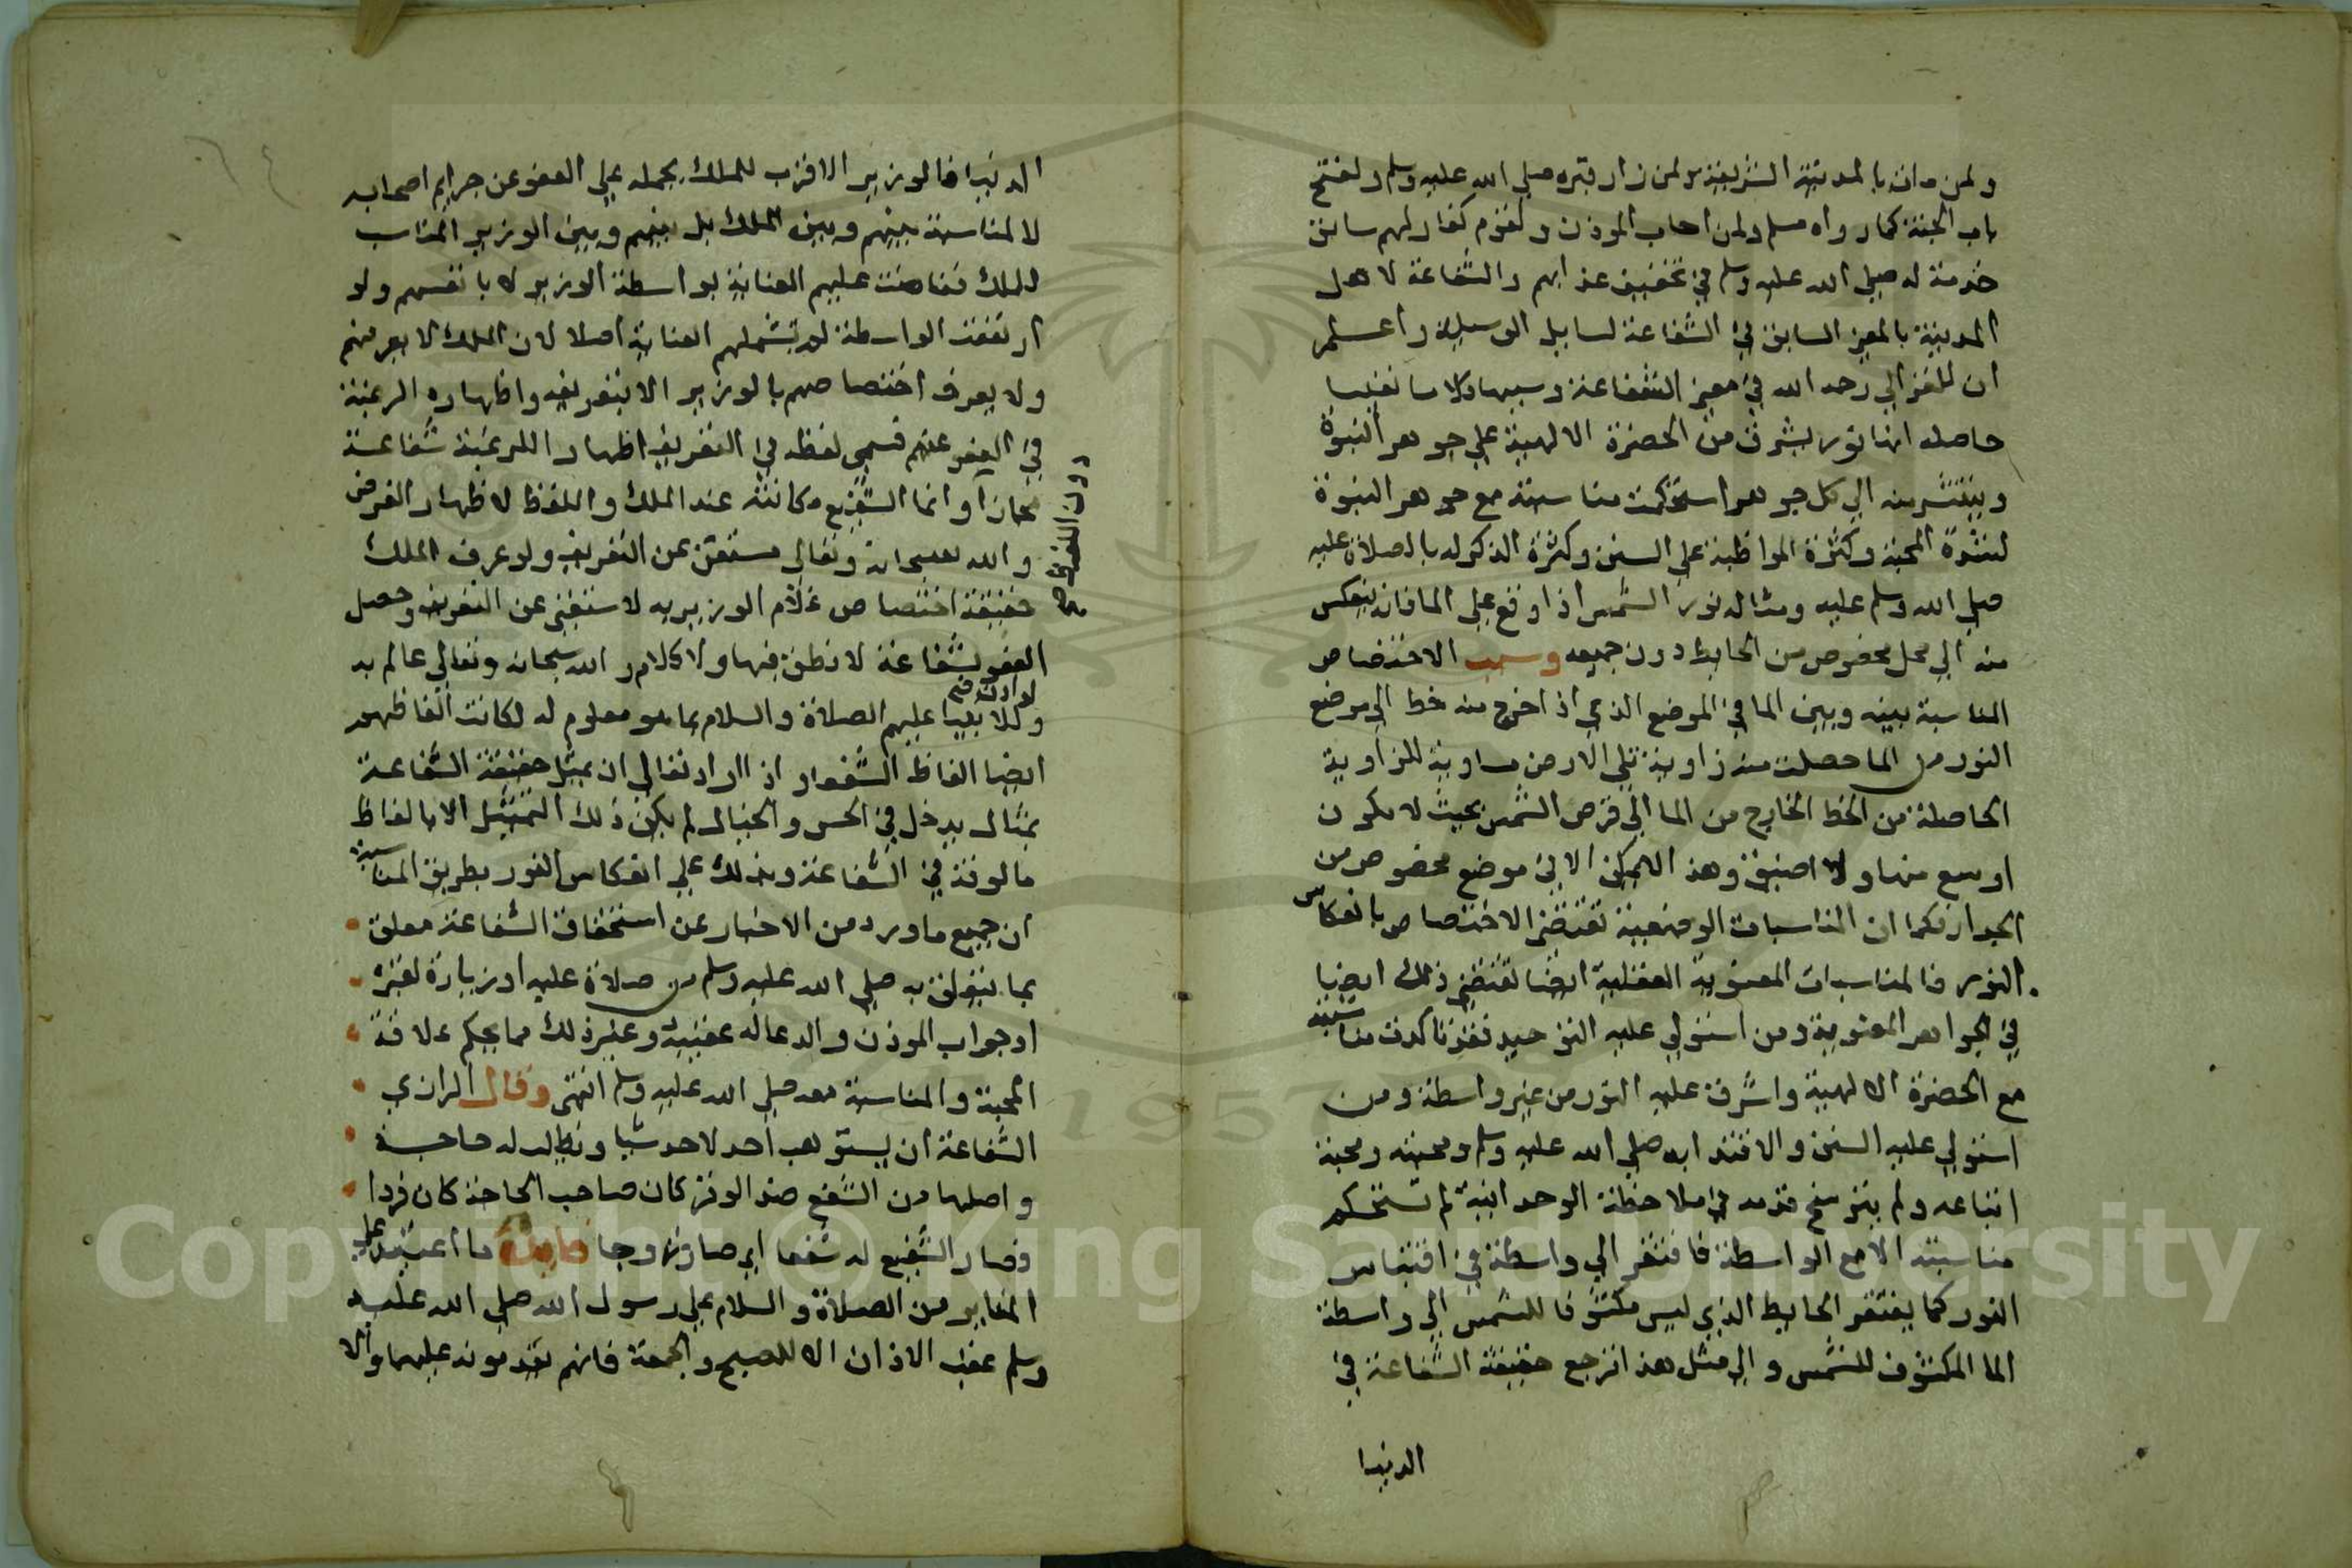 ولمن مات بالمدينة الشريفة ولمن زار قبره صلي الله عليه وسلم ولفتح
باب الجنة كما رواه مسلم ولمن اجاب الموذن ولقوم كفار لهم سابق
خدمة له صلي الله عليه وسلم في تخفيف عذابهم والشفاعة لاهل
المدينة بالمعني السابق في الشفاعة لسايل الوسيلة واعلم
ان للغزالي رحمه الله في معني الشفاعة وسببها كلاما نفيسا
حاصله انها نور يشرق من الحضرة الالهية علي جوهر النبوة
وينتشر منه الي كل جوهر استحكمت مناسبته مع جوهر النبوة
لشدة المحبة وكثرة المواظبة علي السنن وكثرة الذكر له بالصلاة عليه
صلي الله وسلم عليه ومثاله نور الشمس اذا وقع علي الما فانه ينعكس
منه الي محل مخصوص من الحايط دون جميعه وسبب الاختصاص
المناسبة بينه وبين الما في الموضع الذي اذا خرج منه خط الي موضع
النور من الما حصلت منه زاوية تلي الارض مساوية للزاوية
الحاصلة من الخط الخارج من الما الي قرص الشمس بحيث لا يكون
اوسع منها ولا اضيق وهذا لا يمكن الا في موضع مخصوص من
الجدار فكما ان المناسبات الوضعية تقتضي الاختصاص بانعكاس
النور فالمناسبات المعنوية العقلية ايضا تقتضي ذلك ايضا
في الجواهر المعنوية ومن استولي عليه التوحيد فقد تاكدت مناسبته
مع الحضرة الالهية واشرق عليه النور من غير واسطة ومن
استولي عليه السنن والاقتدا به صلي الله عليه وسلم ومحبته ومحبة
اتباعه ولم يترسخ قدمه في ملاحظة الوحدانية لم تستحكم
مناسبته الا مع الواسطة فافتقر الي واسطة في اقتباس
النور كما يفتقر الحايط الذي ليس مكشوفا للشمس الي واسطة
الما المكشوف للشمس والي مثل هذا ترجع حقيقة الشفاعة في
الدنيا
الدنيا فالوزير الاقرب للملك يحمله علي العفو عن جرايم اصحابه
لا لمناسبة بينهم وبين الملك بل بينهم وبين الوزير المناسب
للملك ففاضت عليهم العناية بواسطة الوزير لا بانفسهم ولو
ارتفعت الواسطة لم تشملهم العناية اصلا لان الملك لا يعرفهم
ولا يعرف اختصاصهم بالوزير الا بتعريفه واظهاره الرغبة
في العفو عنهم فسمي لفظه في التعريف اظهارا للرغبة شفاعة
مجازا وانما الشفيع مكانته عند الملك واللفظ لاظهار الغرض
والله سبحانه وتعالي مستغن عن التعريف ولو عرف الملك
حقيقة اختصاص غلام الوزير به لاستغني عن التعريف وحصل
العفو بشفاعة لا نطق فيها ولا كلام والله سبحانه وتعالي عالم به
ولو اذن للانبيا عليهم الصلاة والسلام بما هو معلوم له لكانت الفاظهم
ايضا الفاظ الشفعا واذا اراد تعالي ان يمثل حقيقة الشفاعة
بمثال يدخل في الحس والخيال لم يكن ذلك التمثيل الا بالفاظ
مالوفة في الشفاعة ويدلك علي انعكاس النور بطريق المناسبة
ان جميع ما ورد من الاخبار عن استحقاق الشفاعة معلق
بما يتعلق به صلي الله عليه وسلم من صلاة عليه او زيارة لقبره
او جواب الموذن والدعا له عقبه وغير ذلك مما يحكم علاقة
المحبة والمناسبة معه صلي الله عليه وسلم انتهي وقال الرازي
الشفاعة ان يستوهب احد لاحد شيا ويطلب له حاجة
واصلها من الشفع ضد الوتر كان صاحب الحاجة كان فردا
فصار الشفيع له شفعا اي صارا زوجا فايدة ما اعتيد علي
المنابر من الصلاة والسلام علي رسول الله صلي الله عليه
وسلم عقب الاذان الا للصبح والجمعة فانهم يقدمونه عليهما والا